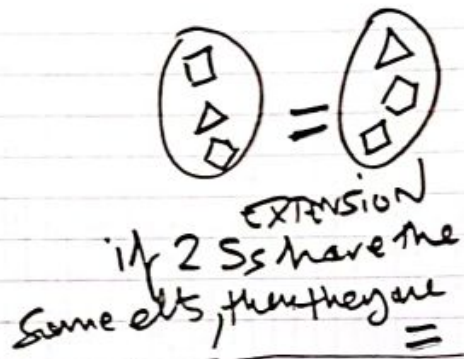 =
EXTENSION
if 2 Ss have the
same elts, then they are
=